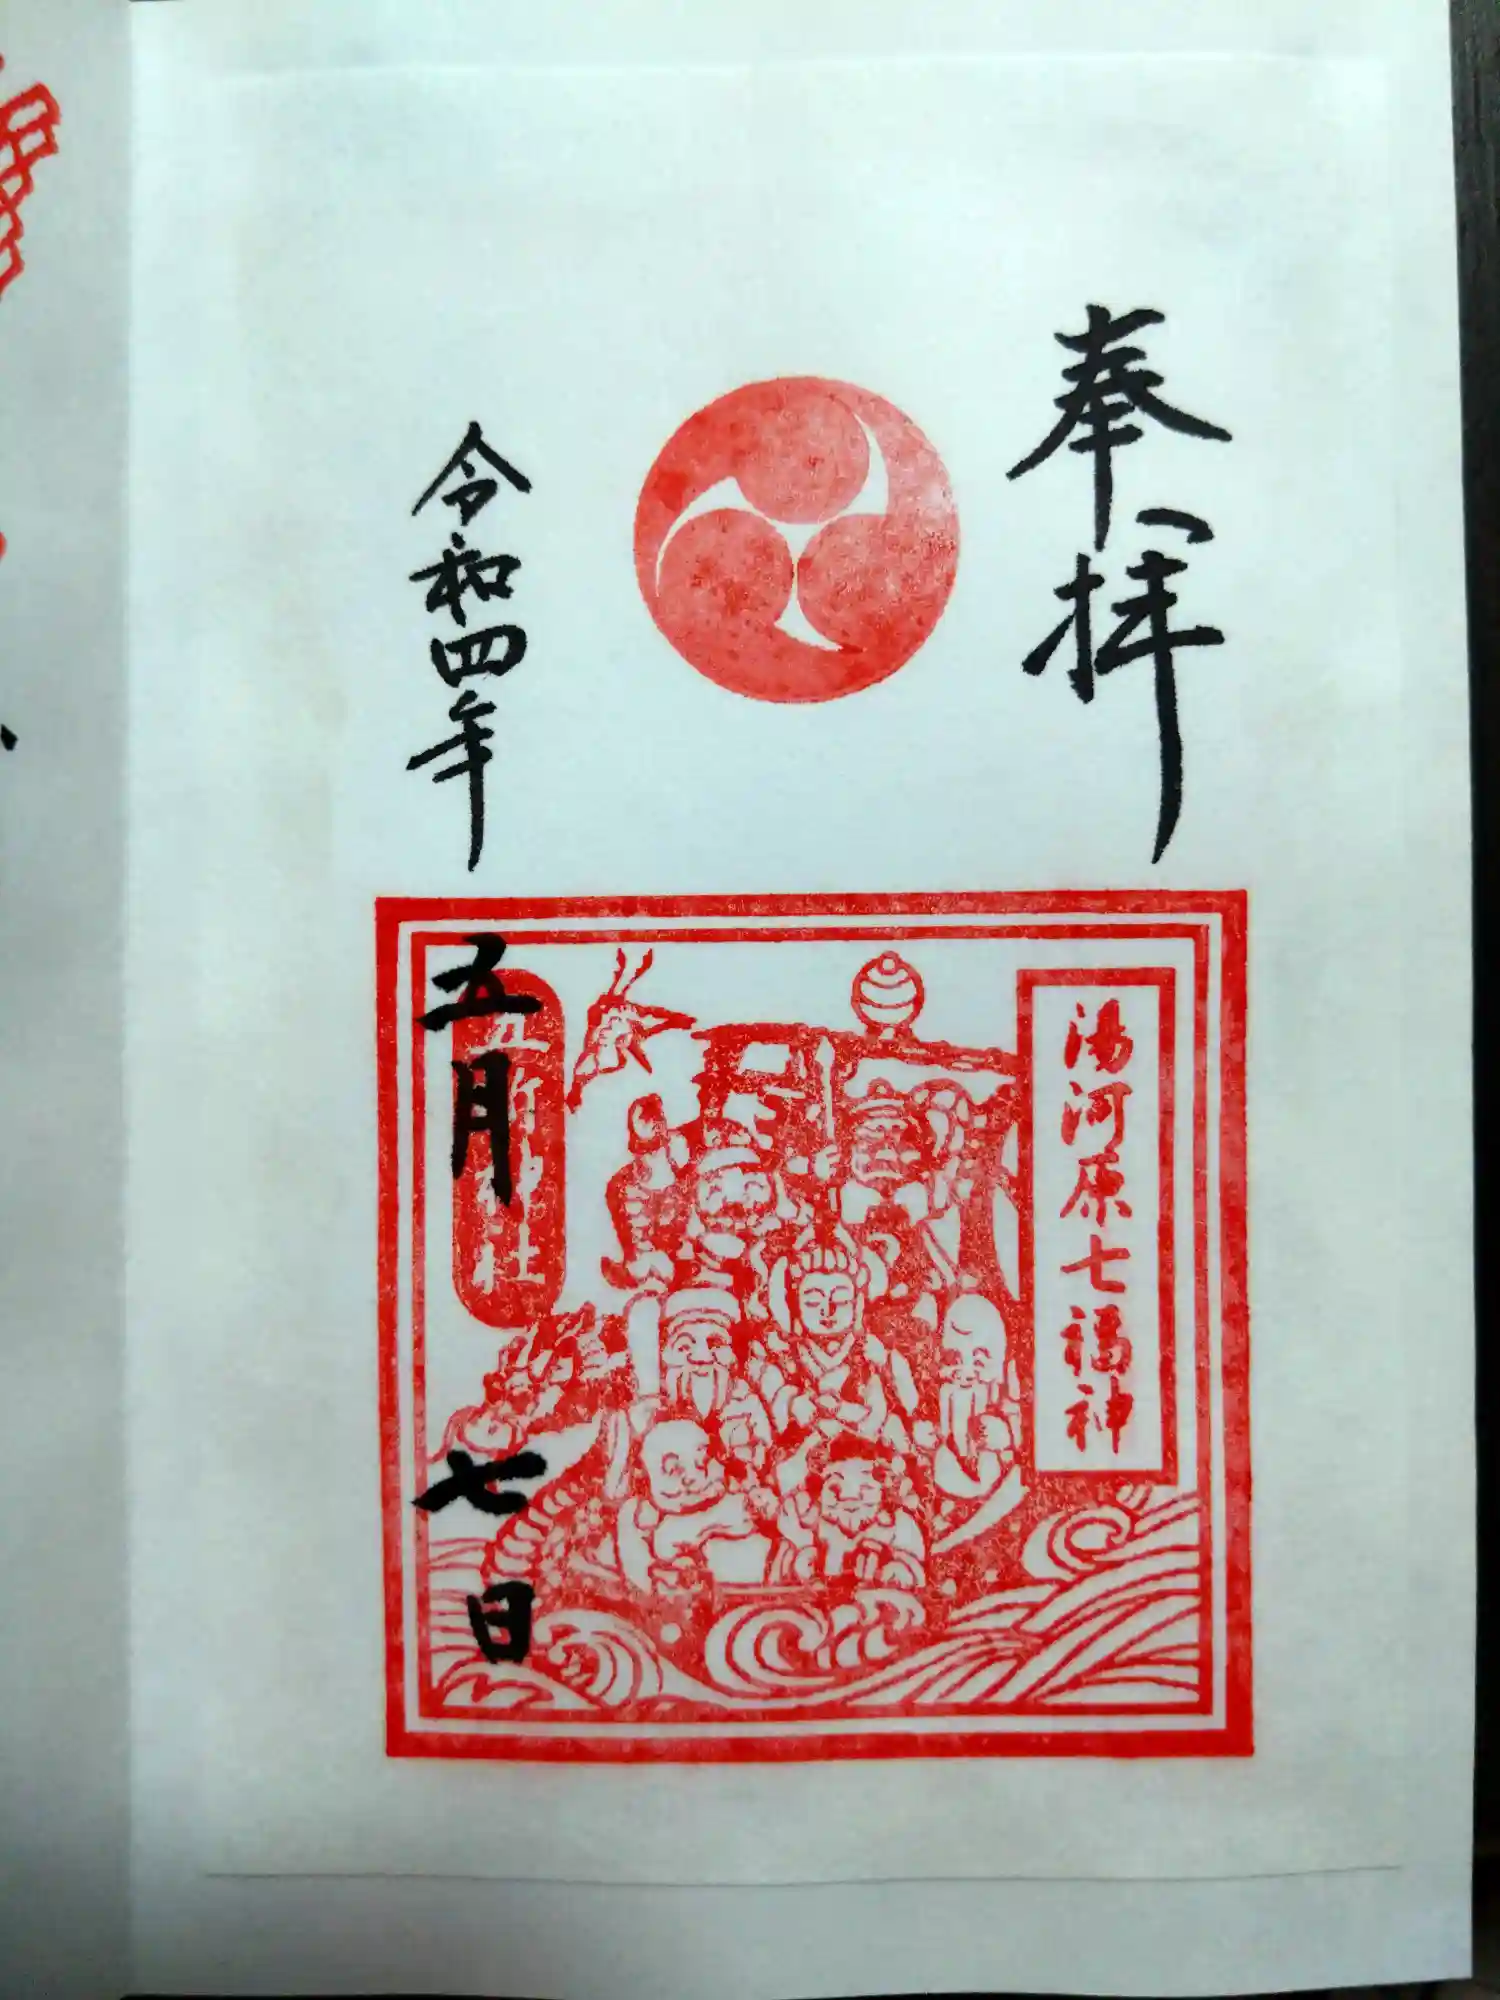 奉拝
湯河原七福神
五所神社
令和四年五月七日